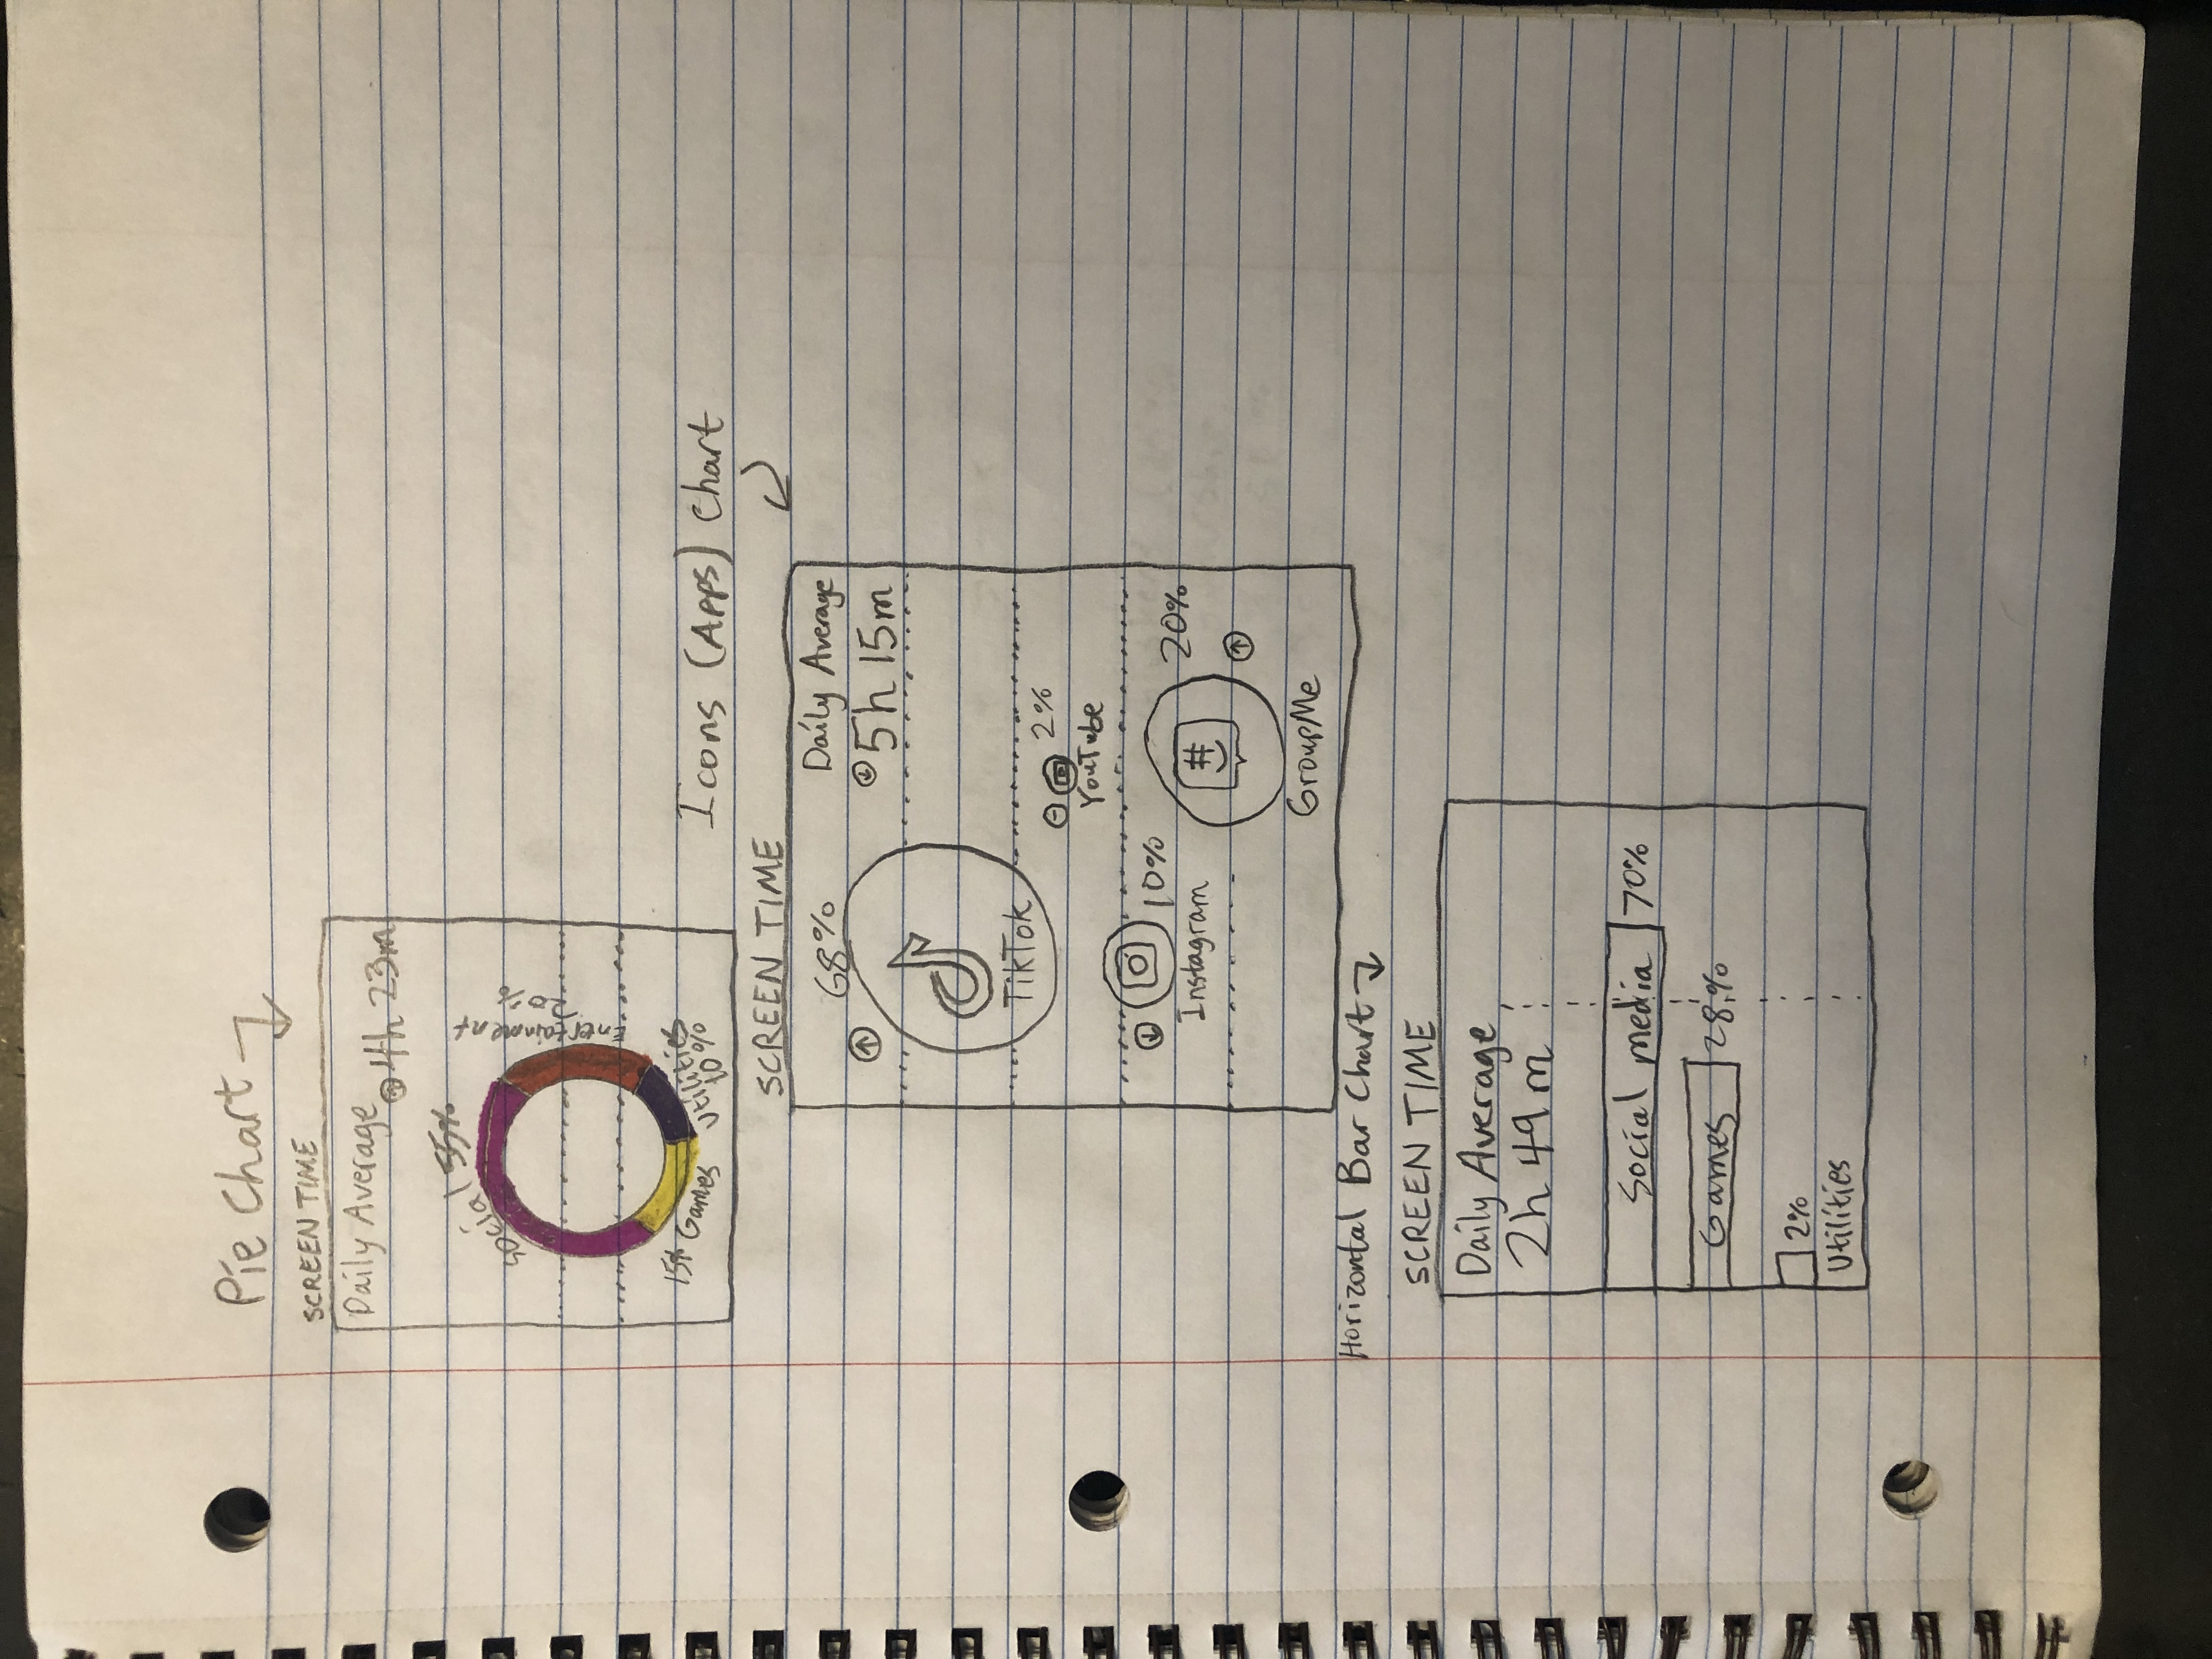 Pie Chart
SCREEN TIME
Daily Average
4h 23m
Social 55%
Entertainment
20%
15% Games
Utilities
10%
Icons (Apps) Chart
SCREEN TIME
68%
Daily Average
5h 15m
TikTok
2%
YouTube
10%
Instagram
20%
#
GroupMe
Horizontal Bar Chart
SCREEN TIME
Daily Average
2h 49m
Social media 70%
Games 28%
2%
Utilities